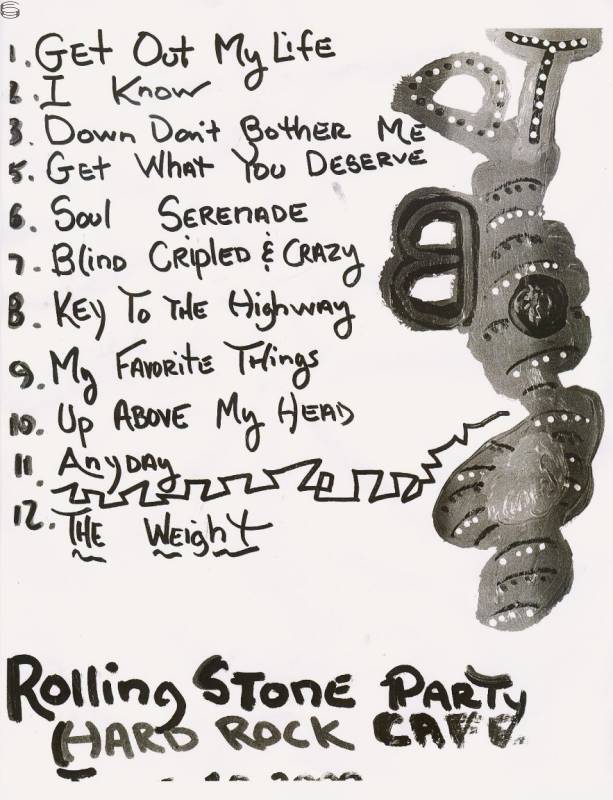 1. Get Out My Life
2. I Know
3. Down Don't Bother Me
5. Get What You Deserve
6. Soul Serenade
7. Blind Cripled & Crazy
8. Key To The Highway
9. My Favorite Things
10. Up Above My Head
11. Anyday
12. The Weight
DTB
Rolling Stone Party
Hard Rock Cafe.